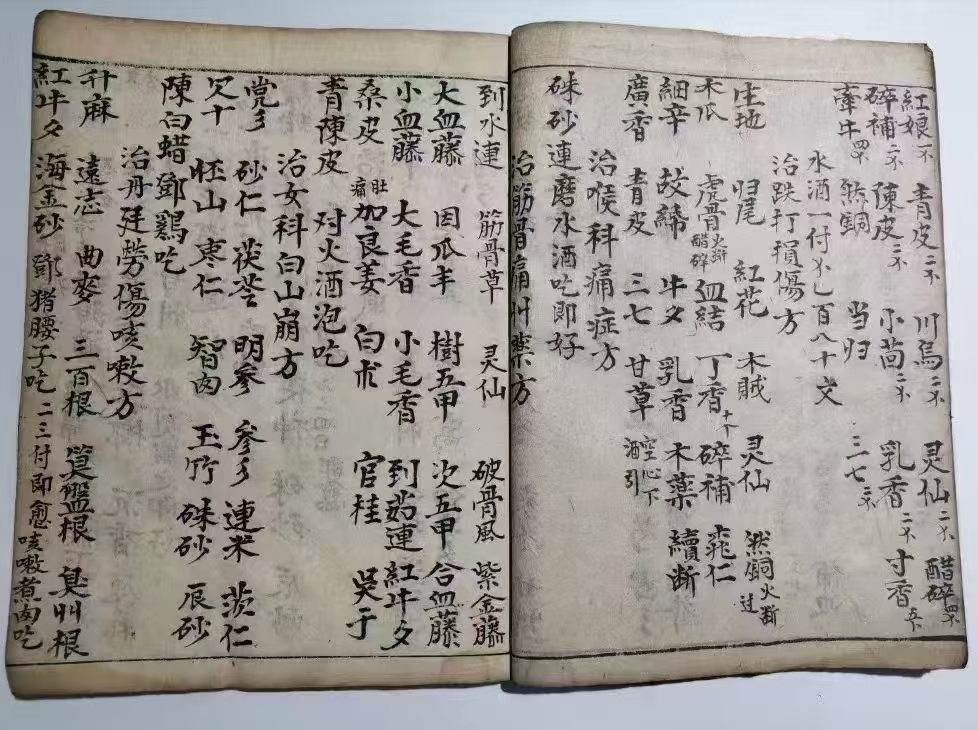 紅娘二不 青皮二不 川烏二不 灵仙二不 醋碎四不
碎補二不 陳皮二不 小茴二不 乳香二不 寸香五不
牽牛四不 然銅 当归 三七二不
水酒一付 百八十文
治跌打損傷方
生地 归尾 紅花 木賊 灵仙 然銅火煅过
木瓜 虎骨火煅醋碎 血結 丁香十个 碎補 桃仁
細辛 故綈 牛夕 乳香 木藥 續断
廣香 青皮 三七 甘草 空心下酒引
治喉科痛症方
硃砂連磨水酒吃即好
治筋骨痛州藥方
到水連 筋骨草 灵仙 破骨風 紫金藤
大血藤 因瓜丰 樹五甲 次五甲 合血藤
小血藤 大毛香 小毛香 到茹連 紅牛夕
桑皮 肚痛加良姜 白朮 官桂 吳于
青陳皮 对火酒泡吃
治女科白山崩方
党参 砂仁 茯苓 明参 参 連米 茨仁
欠十 怀山 枣仁 智肉 玉竹 硃砂 辰砂
陳白蜡 鄧鷄吃
治丹廷勞傷咳嗽方
升麻 遠志 曲麥 三百根 筧盤根 臭州根
紅牛夕 海金砂 鄧猪腰子吃 二三付即愈 咳嗽煮肉吃